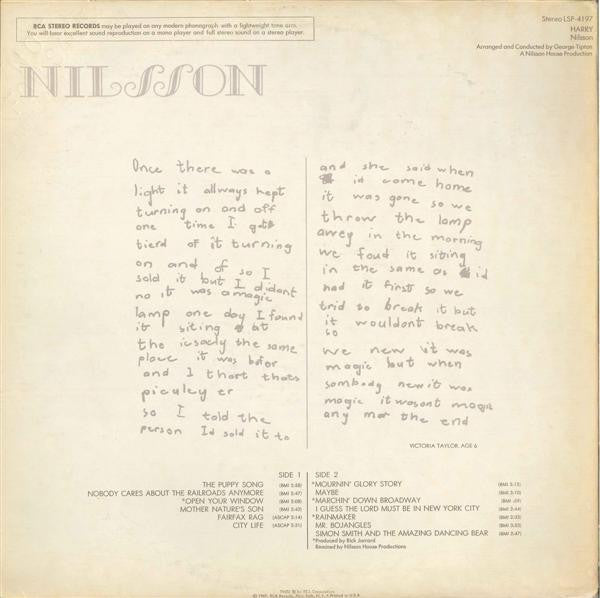 RCA STEREO RECORDS may be played on any modern phonograph with a lightweight tone arm.
You will hear excellent sound reproduction on a mono player and full stereo sound on a stereo player.
Stereo LSP-4197
HARRY
Nilsson
Arranged and Conducted by George Tipton
A Nilsson House Production
NILSSON
Once there was a
light it allways kept
turning on and off
one time I got
tierd of it turning
on and of so I
sold it but I didant
no it was a magic
lamp one day I found
it siting at
the icsacly the same
place it was befor
and I thort thats
piculey er
so I told the
person I'd sold it to
and she said when
id come home
it was gone so we
throw the lamp
awey in the morning
we foud it siting
in the same as id
had it first so we
trid so break it but
it wouldont break
so
we new it was
magic but when
sombody new it was
magic it wasont magic
any mor the end
VICTORIA TAYLOR, AGE 6
SIDE 1
THE PUPPY SONG (BMI 2:38)
NOBODY CARES ABOUT THE RAILROADS ANYMORE (BMI 2:47)
*OPEN YOUR WINDOW (BMI 2:08)
MOTHER NATURE'S SON (BMI 2:42)
FAIRFAX RAG (ASCAP 2:14)
CITY LIFE (ASCAP 2:31)
SIDE 2
*MOURNIN' GLORY STORY (BMI 2:13)
MAYBE (BMI 3:10)
*MARCHIN' DOWN BROADWAY (BMI :59)
I GUESS THE LORD MUST BE IN NEW YORK CITY (BMI 2:44)
*RAINMAKER
MR. BOJANGLES (BMI 3:53)
SIMON SMITH AND THE AMAZING DANCING BEAR (BMI 2:47)
*Produced by Rick Jarrard
Remixed by Nilsson House Productions